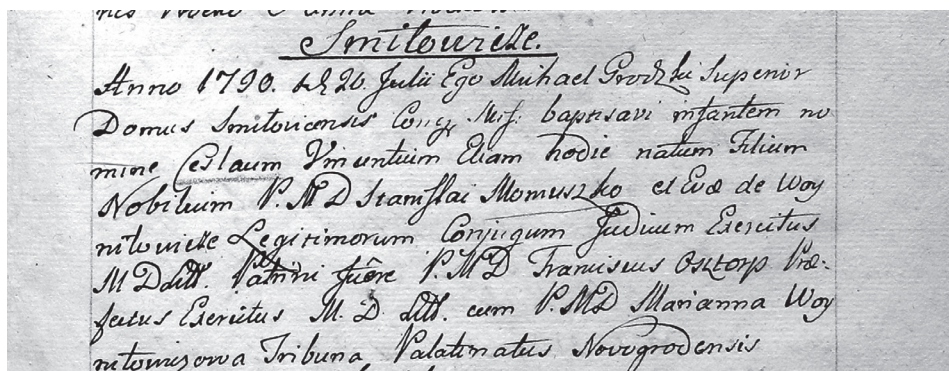 Smitowicze.
Anno 1790. d 20. Julii Ego Michael Grodzki Superior
Domus Smitovicensis Cong. Miss: baptisavi infantem no
mine Ceslaum Vincentium Eliam hodie natum Filium
Nobilium P. M D Stanislai Momuszko et Evæ de Woy
niłowicze Legitimorum Conjugum Judicum Exercitus
M D Litt. Patrini fuêre P. M D Franciscus Osztorp Præ-
fectus Exercitus M. D. Litt. cum P. MD Marianna Woy
niłowiczowa Tribuna Palatinatus Novogrodensis